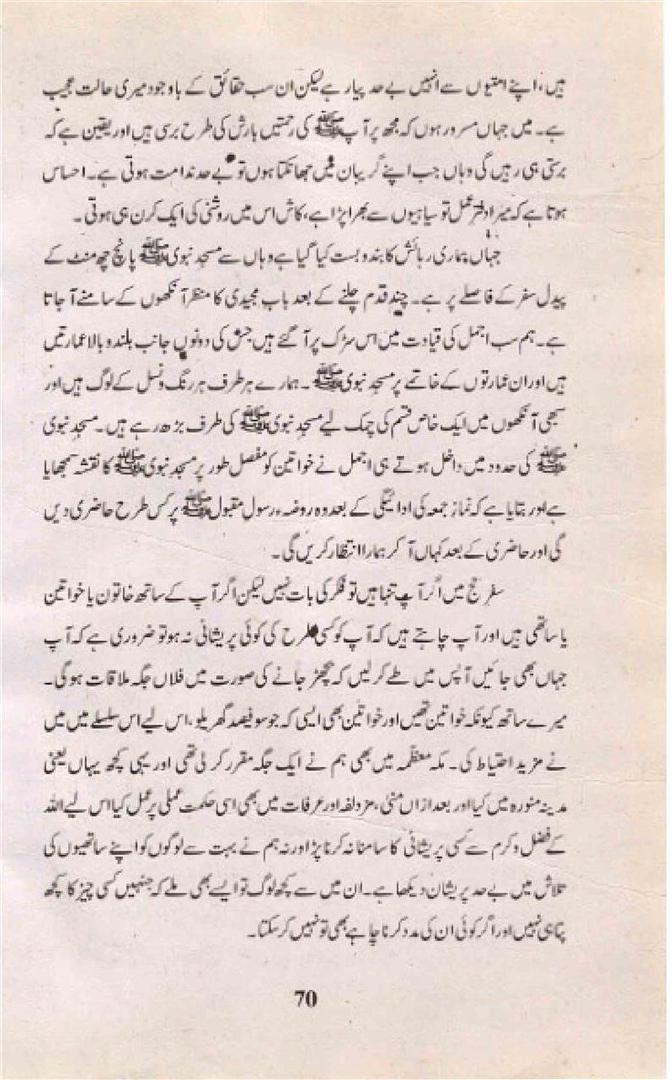 ہیں، اپنے امتیوں سے انہیں بے حد پیار ہے لیکن ان سب حقائق کے باوجود میری حالت عجیب
ہے۔ میں جہاں مسرور ہوں کہ مجھ پر آپ ﷺ کی رحمتیں بارش کی طرح برسی ہیں اور یقین ہے کہ
برستی ہی رہیں گی وہاں جب اپنے گریبان میں جھانکتا ہوں تو بے حد ندامت ہوتی ہے۔ احساس
ہوتا ہے کہ میرا دفتر عمل تو سیاہیوں سے بھرا پڑا ہے، کاش اس میں روشنی کی ایک کرن ہی ہوتی۔
جہاں ہماری رہائش کا بندوبست کیا گیا ہے وہاں سے مسجد نبوی ﷺ پانچ چھ منٹ کے
پیدل سفر کے فاصلے پر ہے۔ چند قدم چلنے کے بعد باب مجیدی کا منظر آنکھوں کے سامنے آ جاتا
ہے۔ ہم سب اجمل کی قیادت میں اس سڑک پر آ گئے ہیں جس کی دونوں جانب بلند و بالا عمارتیں
ہیں اور ان عمارتوں کے خاتمے پر مسجد نبوی ﷺ۔ ہمارے ہر طرف ہر رنگ و نسل کے لوگ ہیں اور
سبھی آنکھوں میں ایک خاص قسم کی چمک لیے مسجد نبوی ﷺ کی طرف بڑھ رہے ہیں۔ مسجد نبوی
ﷺ کی حدود میں داخل ہوتے ہی اجمل نے خواتین کو مفصل طور پر مسجد نبوی ﷺ کا نقشہ سمجھایا
ہے اور بتایا ہے کہ نماز جمعہ کی ادائیگی کے بعد وہ روضہء رسول مقبول ﷺ پر کس طرح حاضری دیں
گی اور حاضری کے بعد کہاں آ کر ہمارا انتظار کریں گی۔
سفر حج میں اگر آپ تنہا ہیں تو فکر کی بات نہیں لیکن اگر آپ کے ساتھ خاتون یا خواتین
یا ساتھی ہیں اور آپ چاہتے ہیں کہ آپ کو کسی طرح کی کوئی پریشانی نہ ہو تو ضروری ہے کہ آپ
جہاں بھی جائیں آپس میں طے کر لیں کہ بچھڑ جانے کی صورت میں فلاں جگہ ملاقات ہوگی۔
میرے ساتھ کیونکہ خواتین تھیں اور خواتین بھی ایسی کہ جو سو فیصد گھریلو، اس لیے اس سلسلے میں میں
نے مزید احتیاط کی۔ مکہ معظمہ میں بھی ہم نے ایک جگہ مقرر کر لی تھی اور یہی کچھ یہاں یعنی
مدینہ منورہ میں کیا اور بعد ازاں منیٰ، مزدلفہ اور عرفات میں بھی اسی حکمت عملی پر عمل کیا اس لیے اللہ
کے فضل و کرم سے کسی پریشانی کا سامنا نہ کرنا پڑا ورنہ ہم نے بہت سے لوگوں کو اپنے ساتھیوں کی
تلاش میں بے حد پریشان دیکھا ہے۔ ان میں سے کچھ لوگ تو ایسے بھی ملے کہ جنہیں کسی چیز کا کچھ
پتا ہی نہیں اور اگر کوئی ان کی مدد کرنا چاہے بھی تو نہیں کر سکتا۔
70